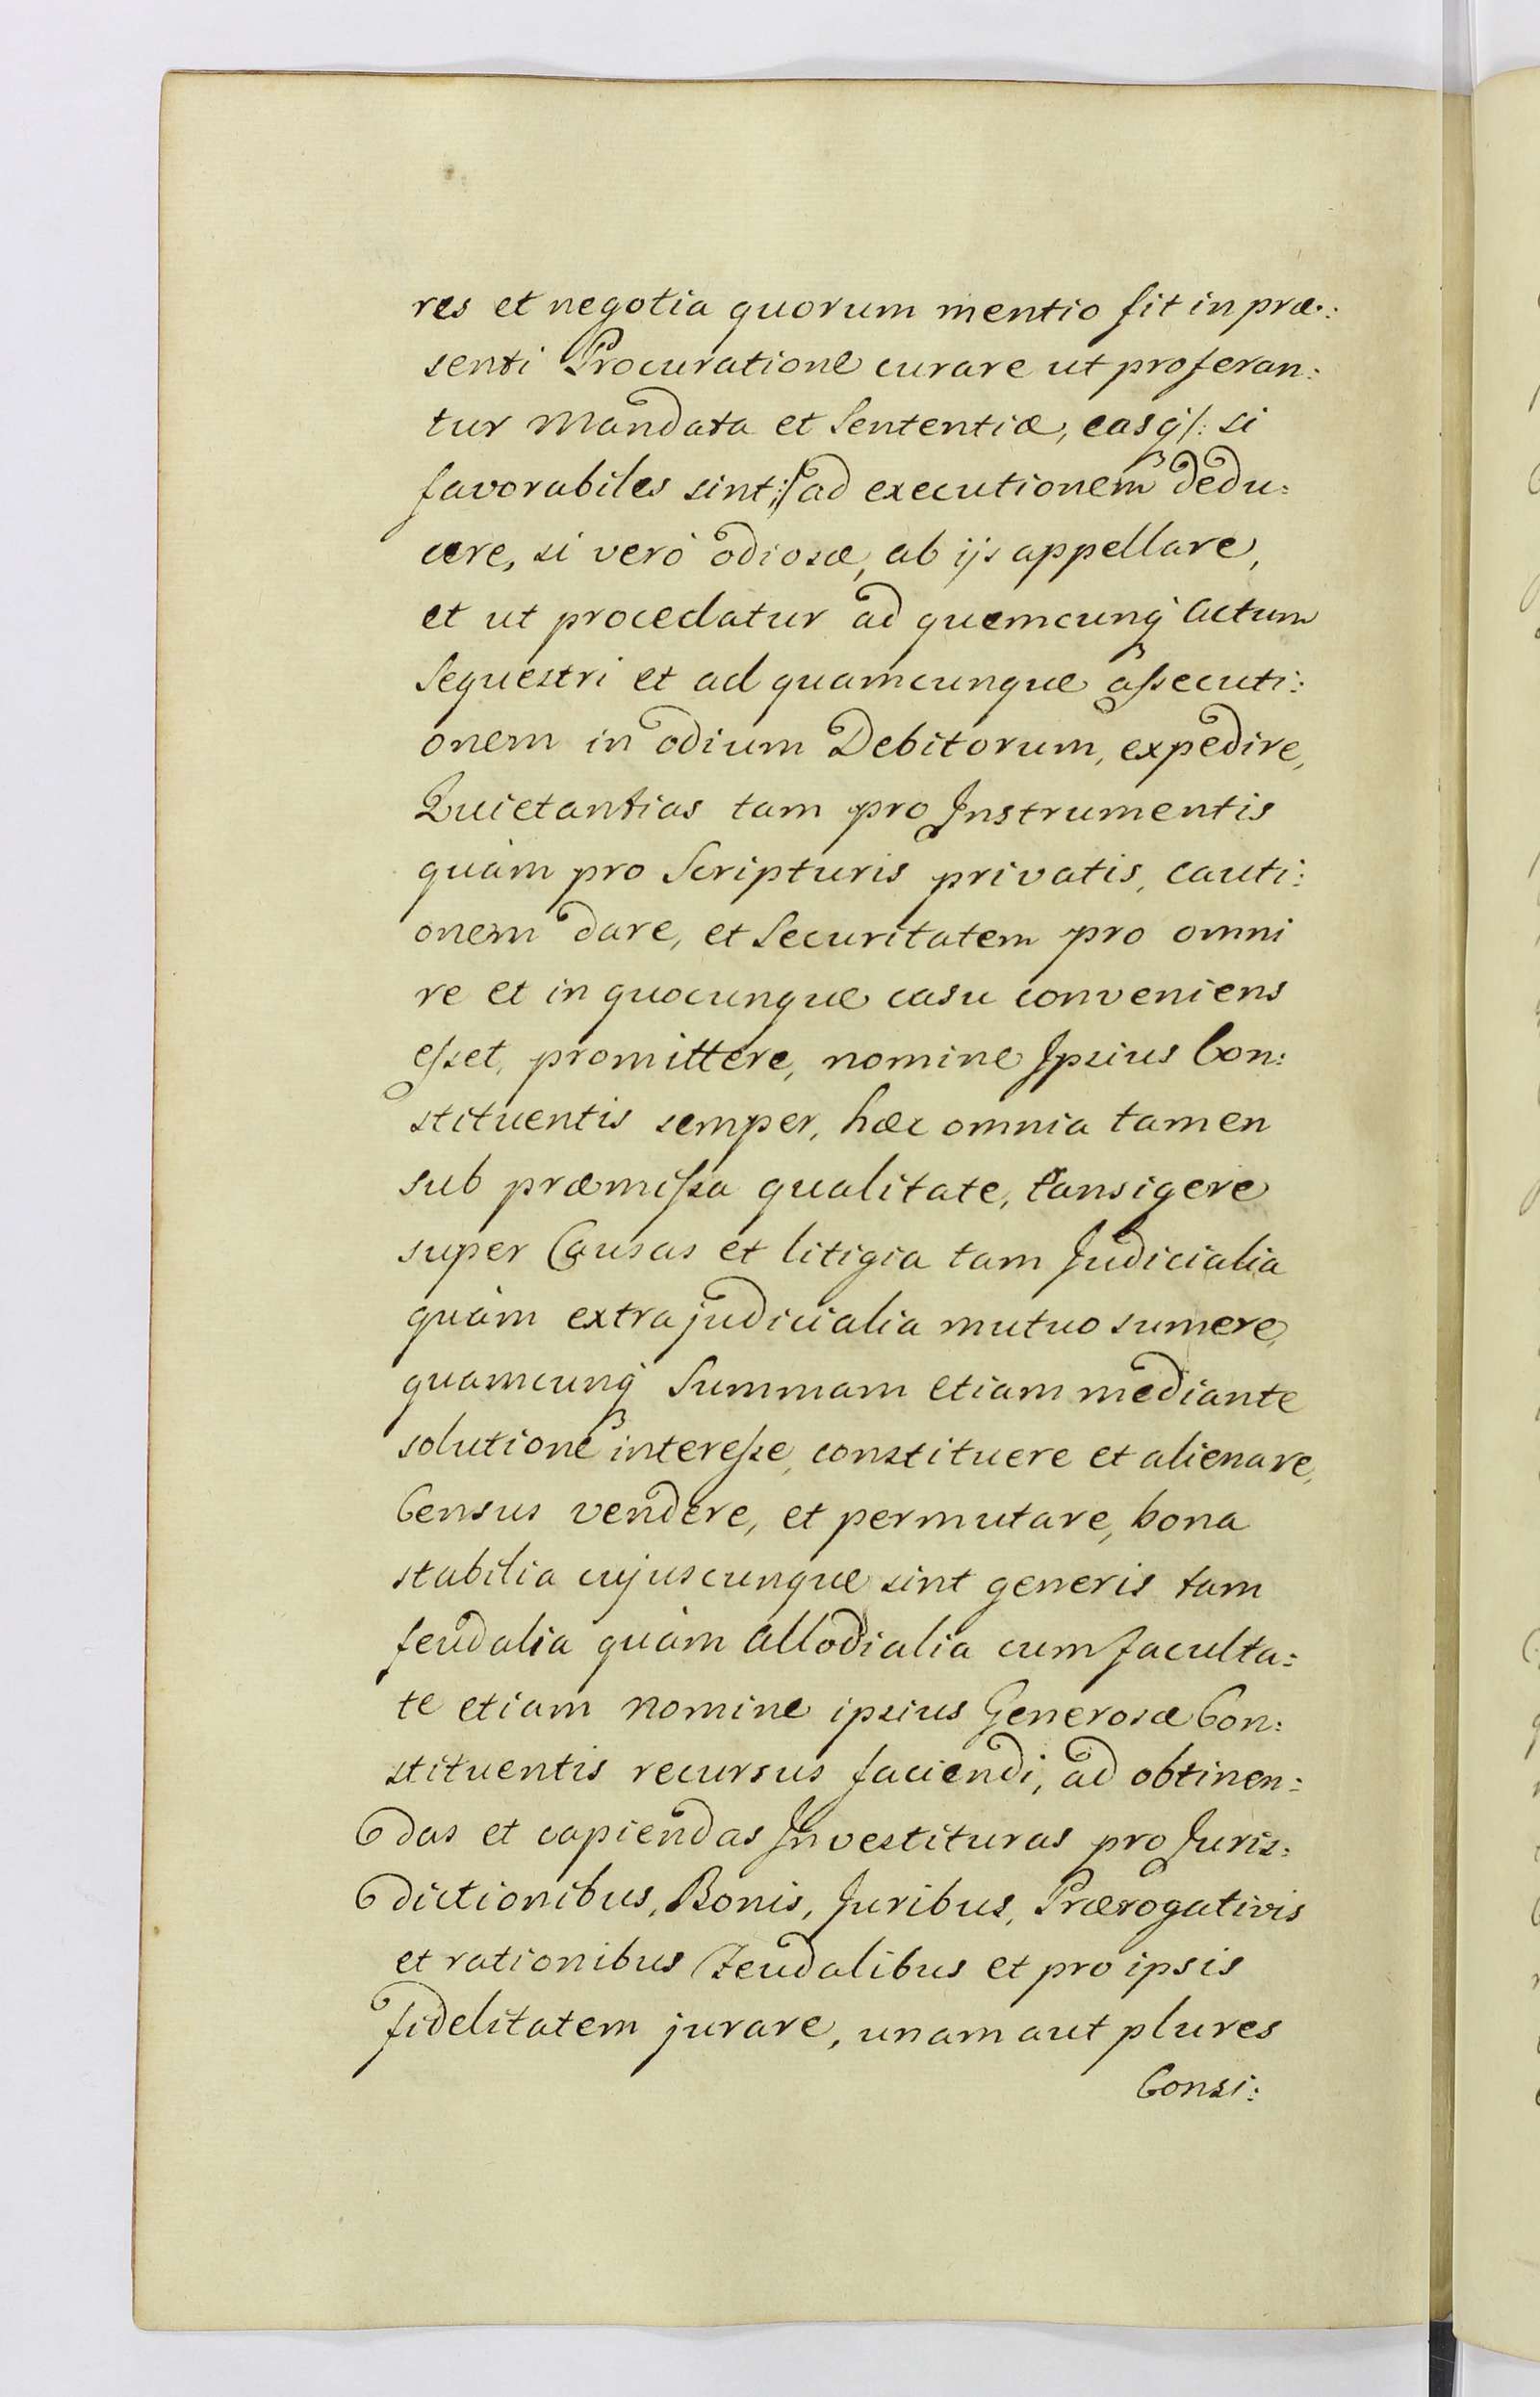 res et negotia quorum mentio fit in præ:
senti Procuratione curare ut proferan:
tur Mandata et Sententiæ, easq́ /: si
favorabiles sint :/ ad executionem dedu:
cere, si verò odiosæ, ab ijs appellare,
et ut procedatur ad quemcunq́ Actum
Sequestri et ad quamcunque assecuti:
onem in odium Debitorum, expedire,
Quietantias tam pro Instrumentis
quàm pro Scripturis privatis, cauti:
onem dare, et Securitatem pro omni
re et in quocunque casu conveniens
esset, promittere, nomine Ipsius Con:
stituentis semper, hæc omnia tamen
sub præmissa qualitate, transigere
super Causas et litigia tam Judicialia
quàm extrajudicialia mutuo sumere,
quamcunq́ Summam etiam mediante
solutione interesse, constituere et alienare,
Census vendere, et permutare, bona
stabilia cujuscunque sint generis tam
feudalia quàm Allodialia cum faculta:
te etiam nomine ipsius Generosæ Con:
stituentis recursus faciendi, ad obtinen:
das et capiendas Investituras pro Juris:
dictionibus, Bonis, Juribus, Prærogativis
et rationibus Feudalibus et pro ipsis
fidelitatem jurare, unam aut plures
Consi: